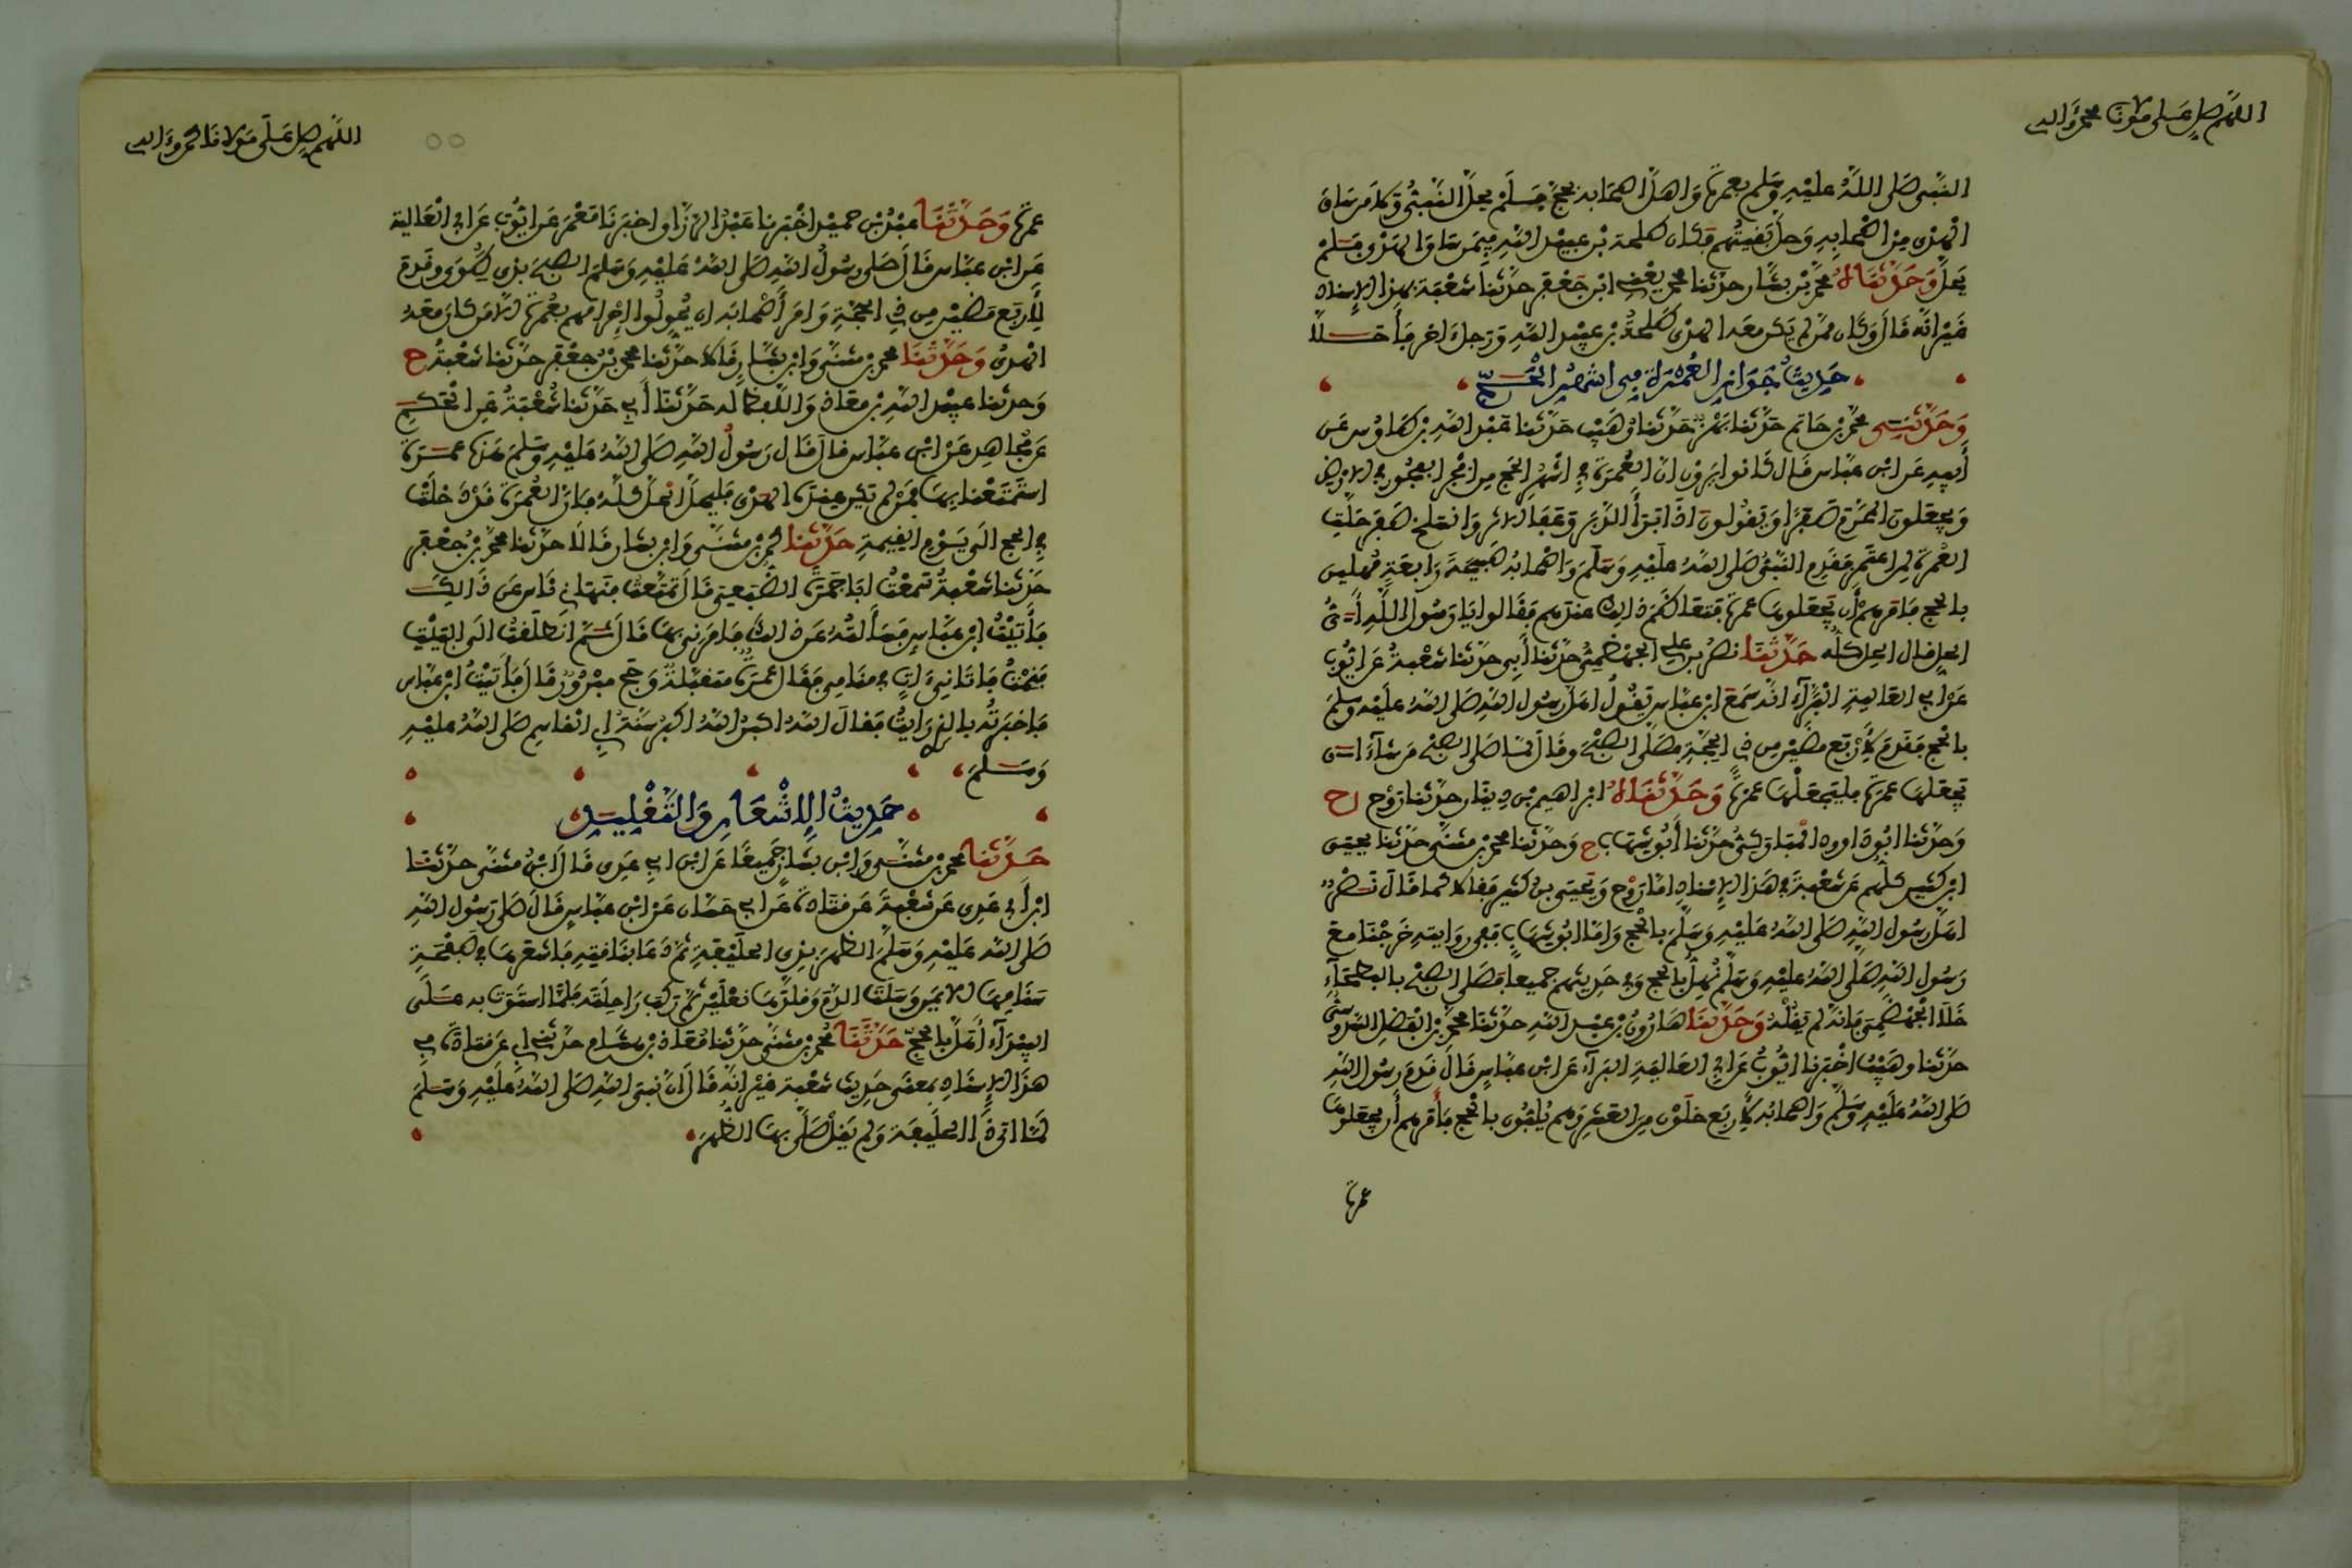 اللهم صل على مولانا محمد وءاله
النبي صلى الله عليه وسلم بعمرة واهل اصحابه بحج فلم يحل النبي ولا من ساق
الهدي من اصحابه وحل بقيتهم فكان طلحة بن عبيد الله فيمن ساق الهدي فلم
يحل وحدثناه محمد بن بشار حدثنا محمد يعني ابن جعفر حدثنا شعبة بهذا الإسناد
غير انه قال وكان ممن لم يكن معه الهدي طلحة بن عبيد الله ورجل ءاخر فأحلا
حديث جواز العمرة في اشهر الحج
وحدثني محمد بن حاتم حدثنا بهز حدثنا وهيب حدثنا عبد الله بن طاوس عن
أبيه عن ابن عباس قال كانوا يرون ان العمرة في اشهر الحج من افجر الفجور في الارض
ويجعلون المحرم صفرا ويقولون اذا برأ الدبر وعفا الاثر وانسلخ صفر حلت
العمرة لمن اعتمر فقدم النبي صلى الله عليه وسلم واصحابه صبيحة رابعة مهلين
بالحج فأمرهم أن يجعلوها عمرة فتعاظم ذالك عندهم فقالوا يا رسول الله أي
الحل قال الحل كله حدثنا نصر بن علي الجهضمي حدثنا أبي حدثنا شعبة عن ايوب
عن ابي العالية البراء انه سمع ابن عباس يقول اهل رسول الله صلى الله عليه وسلم
بالحج فقدم لأربع مضين من ذي الحجة فصلى الصبح وقال لما صلى الصبح من شاء ان
يجعلها عمرة فليجعلها عمرة وحدثناه ابراهيم بن دينار حدثنا روح ح
وحدثنا ابو داوود المباركي حدثنا أبو شهاب ح وحدثنا محمد بن مثنى حدثنا يحيى
ابن كثير كلهم عن شعبة في هذا الإسناد اما روح ويحيى بن كثير فقالا كما قال نصر
اهل رسول الله صلى الله عليه وسلم بالحج واما ابو شهاب ففي روايته خرجنا مع
رسول الله صلى الله عليه وسلم نهل بالحج وفي حديثهم جميعا فصلى الصبح بالبطحاء
خلا الجهضمي فانه لم يقله وحدثنا هارون بن عبد الله حدثنا محمد بن الفضل السدوسي
حدثنا وهيب اخبرنا ايوب عن ابي العالية البراء عن ابن عباس قال قدم رسول الله
صلى الله عليه وسلم واصحابه لأربع خلون من العشر وهم يلبون بالحج فأمرهم أن يجعلوها
عمرة
اللهم صل على مولانا محمد وءاله
عمرة وحدثنا عبد بن حميد اخبرنا عبد الرزاق اخبرنا معمر عن ايوب عن ابي العالية
عن ابن عباس قال صلى رسول الله صلى الله عليه وسلم الصبح بذي طوى وقدم
لأربع مضين من ذي الحجة وامر أصحابه ان يحولوا إحرامهم بعمرة الا من كان معه
الهدي وحدثنا محمد بن مثنى وابن بشار قالا حدثنا محمد بن جعفر حدثنا شعبة ح
وحدثنا عبيد الله بن معاذ واللفظ له حدثنا أبي حدثنا شعبة عن الحكم
عن مجاهد عن ابن عباس قال قال رسول الله صلى الله عليه وسلم هذه عمرة
استمتعنا بها فمن لم تكن عنده الهدي فليحل الحل كله فان العمرة قد دخلت
في الحج الى يوم القيمة حدثنا محمد بن مثنى وابن بشار قالا حدثنا محمد بن جعفر
حدثنا شعبة سمعت ابا جمرة الضبعي قال تمتعت فنهاني ناس عن ذالك
فأتيت ابن عباس فسألته عن ذالك فامرني بها قال ثم انطلقت الى البيت
فنمت فاتاني ءات في منامي فقال عمرة متقبلة وحج مبرور قال فأتيت ابن عباس
فاخبرته بالذي رايت فقال الله اكبر الله اكبر سنة ابي القاسم صلى الله عليه
وسلم
حديث الإشعار والتقليد
حدثنا محمد بن مثنى وابن بشار جميعا عن ابن ابي عدي قال ابن مثنى حدثنا
ابن أبي عدي عن شعبة عن قتادة عن ابي حسان عن ابن عباس قال صلى رسول الله
صلى الله عليه وسلم الظهر بذي الحليفة ثم دعا بناقته فاشعرها في صفحة
سنامها الايمن وسلت الدم وقلدها نعلين ثم ركب راحلته فلما استوت به على
البيداء أهل بالحج حدثنا محمد بن مثنى حدثنا معاذ بن هشام حدثني ابي عن قتادة في
هذا الإسناد بمعنى حديث شعبة غير انه قال ان نبي الله صلى الله عليه وسلم
لما اتى ذا الحليفة ولم يقل صلى بها الظهر